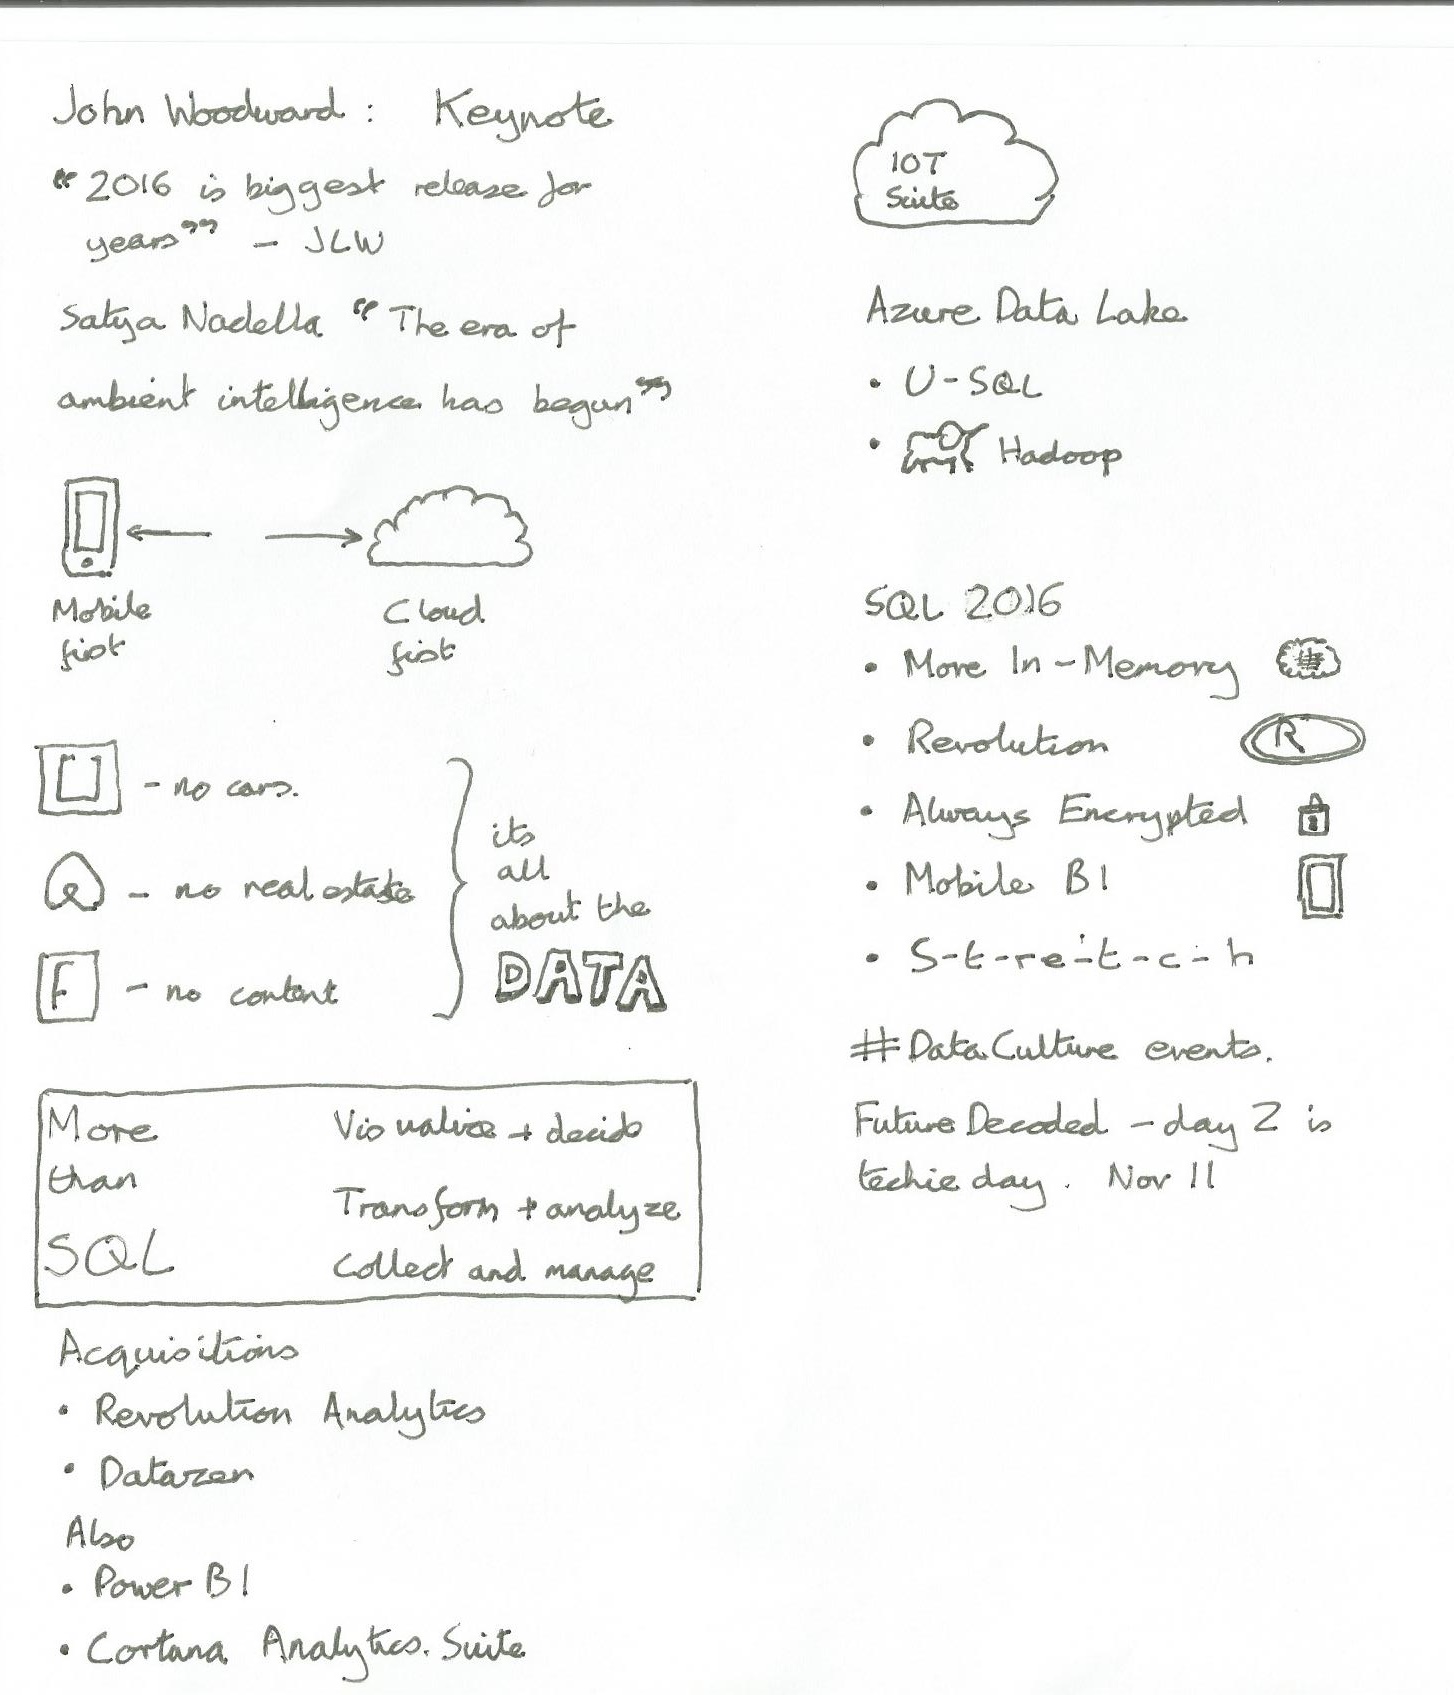 John Woodward : Keynote
“ 2016 is biggest release for
years” – JLW
Satya Nadella “ The era of
ambient intelligence has begun”
Mobile
first
Cloud
first
U – no cars.
– no real estate
F – no content
its
all
about the
DATA
More
than
SQL
Visualize + decide
Transform + analyze
Collect and manage
Acquisitions
• Revolution Analytics
• Datazen
Also
• Power BI
• Cortana Analytics. Suite
IOT
Suite
Azure Data Lake
• U-SQL
• Hadoop
SQL 2016
• More In-Memory
• Revolution R
• Always Encrypted
• Mobile BI
• S-t-r-e-t-c-h
#DataCulture events.
Future Decoded – day 2 is
techie day. Nov 11